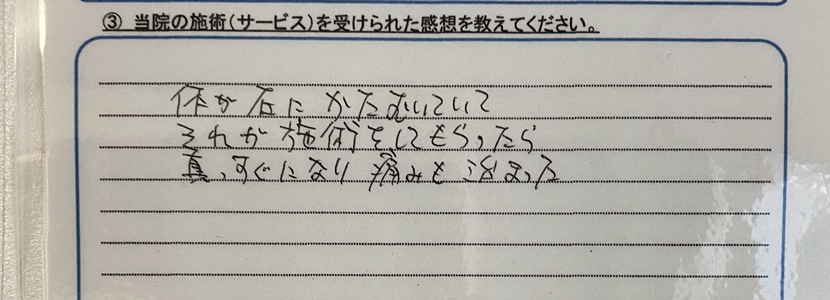 ③ 当院の施術(サービス)を受けられた感想を教えてください。
体が右にかたむいていて
それが施術をしてもらったら
真っすぐになり痛みも治まった